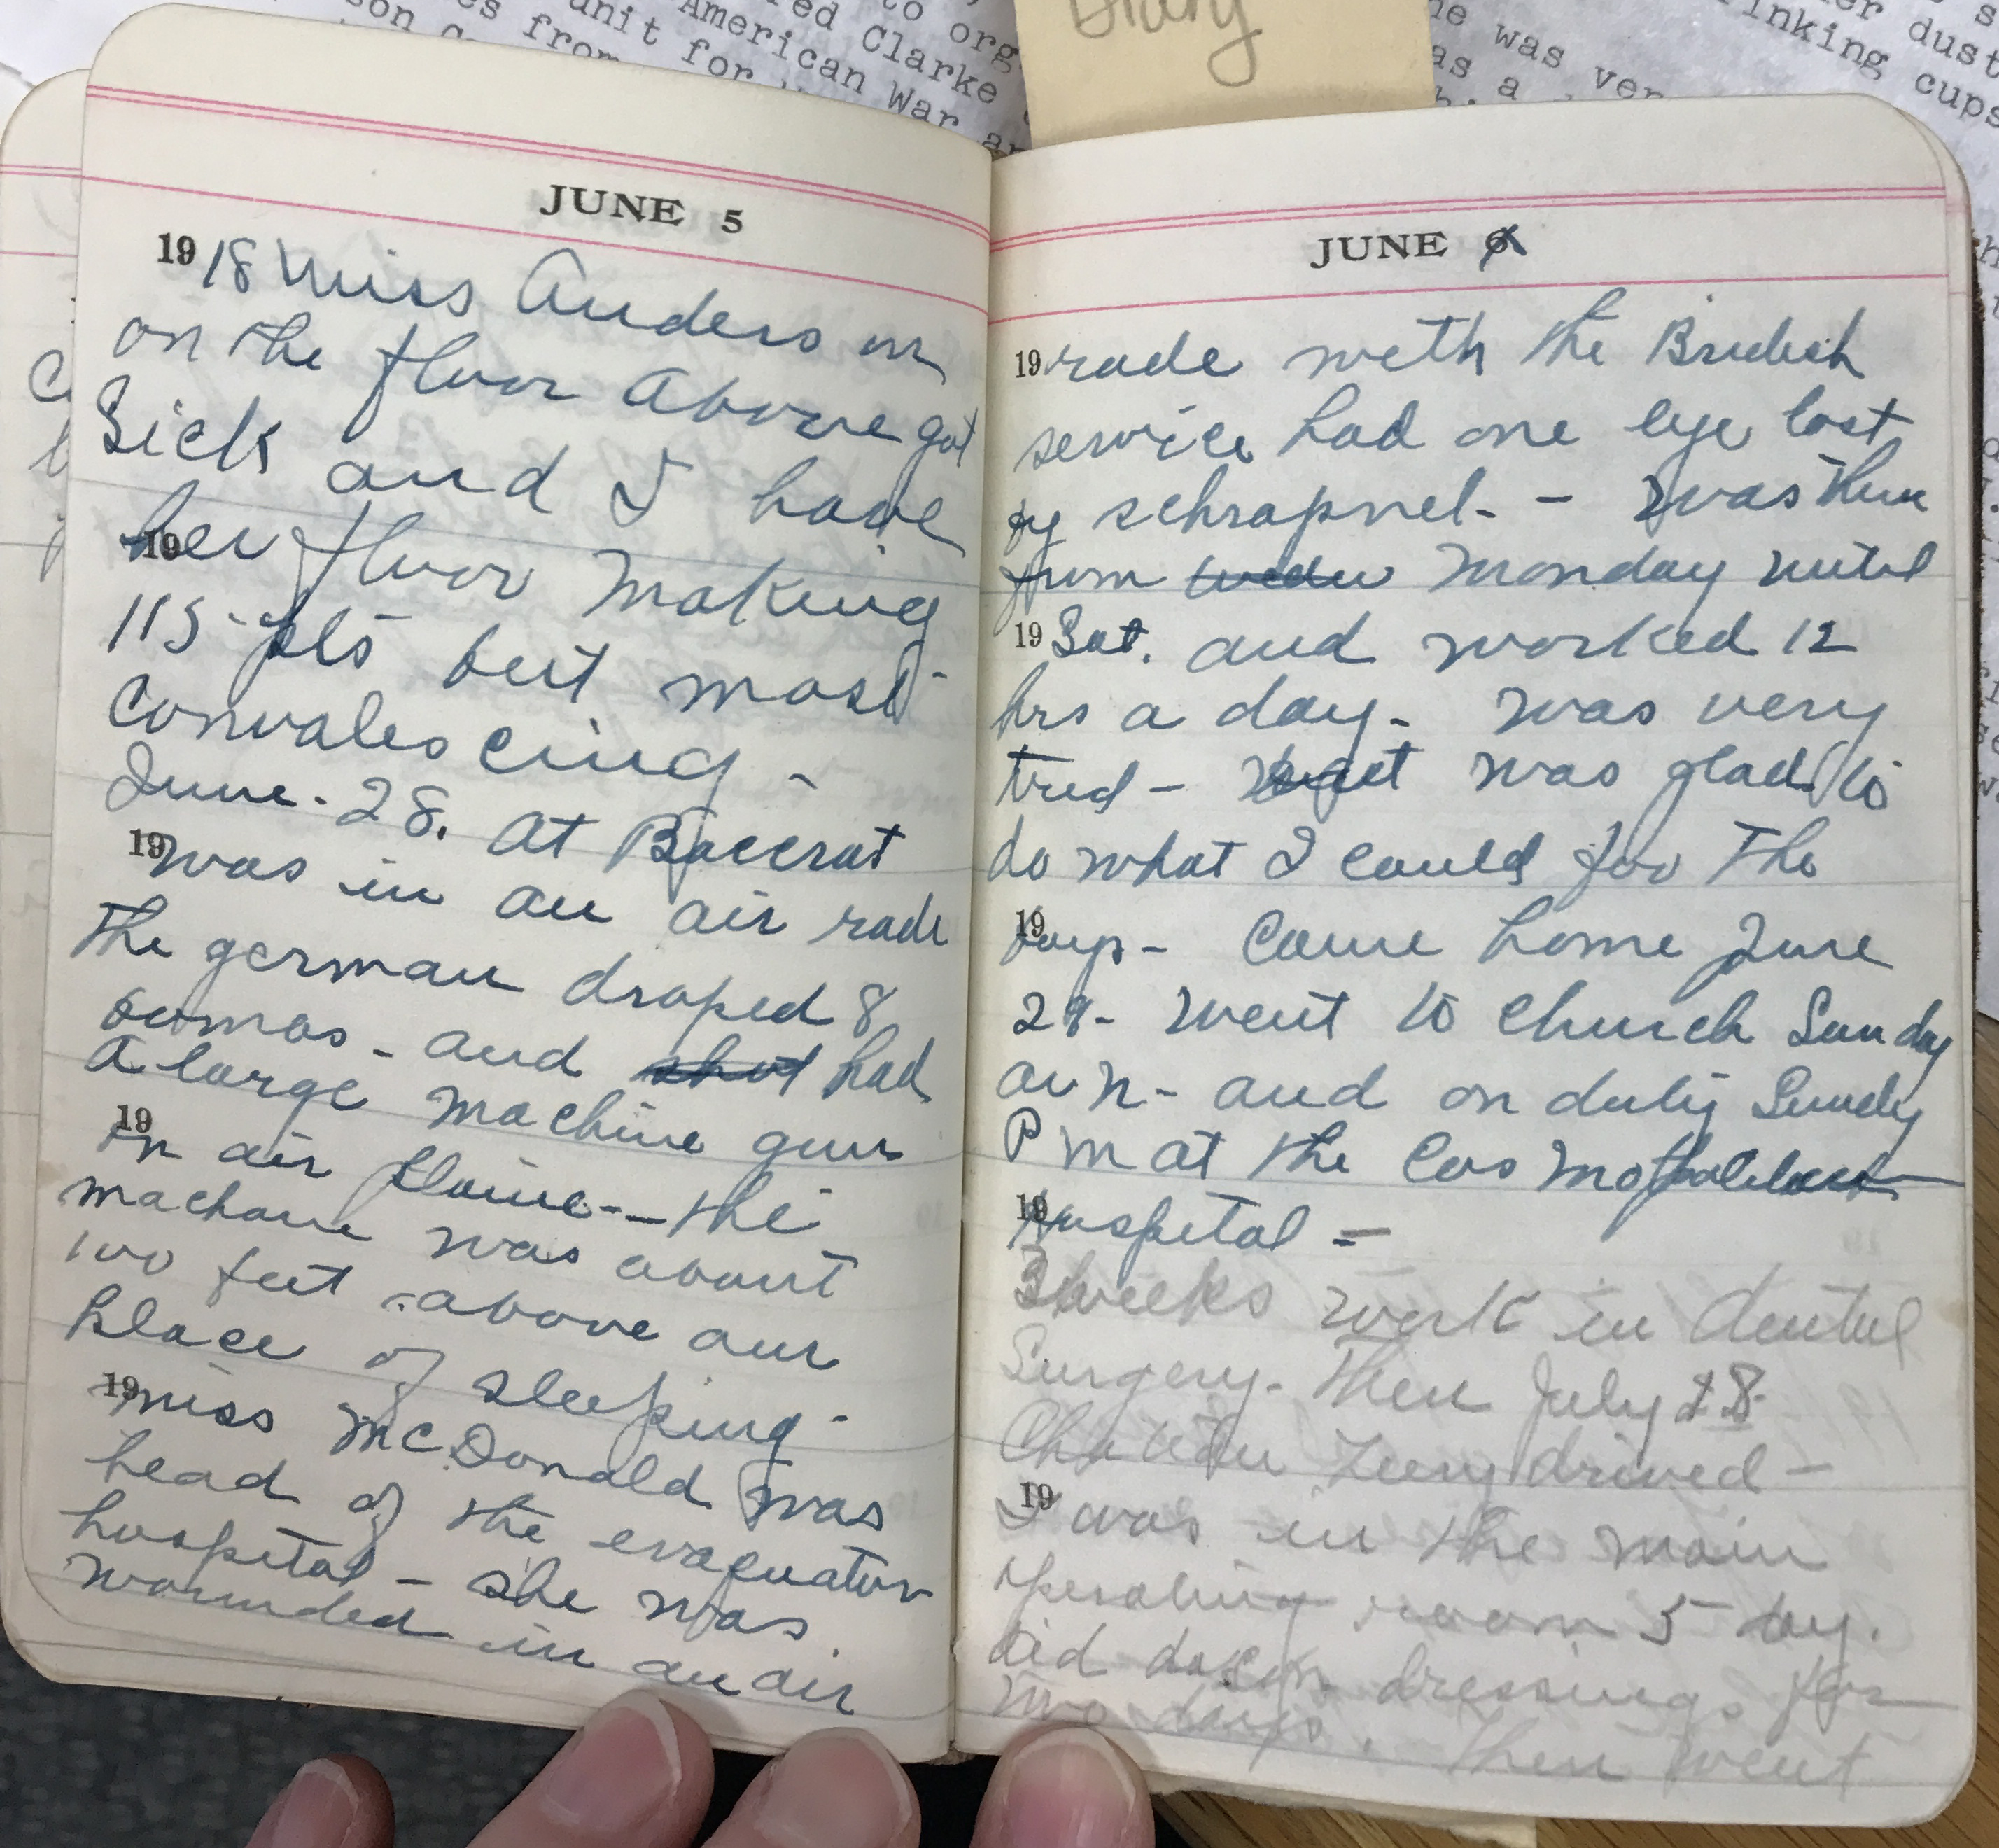 red
to org
unit for
American War
Clarke
es from
son
Diary
ne was ver
as a
inking cups
er dust
JUNE 5
1918 Miss Anderson
on the floor above got
Sick and I have
19
her floor making
115 - pts but most
convalescing -
June. 28. At Baccrat
19 was in an air rade
the german droped 8
bombs - and shot had
a large machine gun
19
in air plaine -- the
machane was about
100 feet above our
place of sleeping -
19 miss McDonald was
head of the evaquation
hospital - she was
wounded in an air
JUNE 6
19 rade with the British
service had one eye lost
by schrapnel. - Was there
from Monday until
19 Sat. and worked 12
hrs a day - was very
tired - but was glad to
do what I could for the
19
boys - Came home June
29 - went to church Sunday
and on duty Sunday
P m at the Cosmopolitan
19
Hospital -
3 weeks work in dental
Surgery - then July 28
Chateau drived -
19
I was in the main
operating room 5 day.
did dressings for
two days. then went